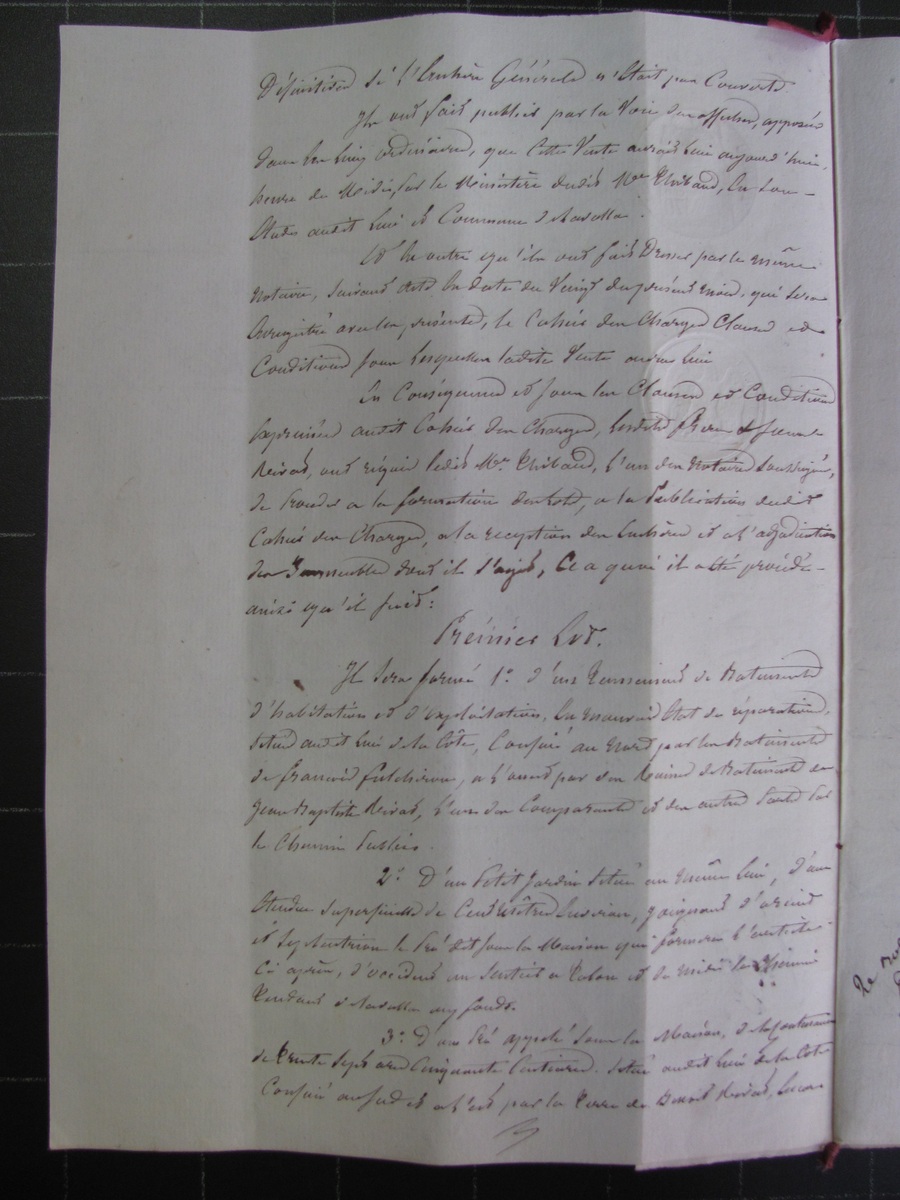 Définitive si l'Enchère Générale n'était pas Couverte
Ils ont fait publier par la Voie des affiches, apposées
dans les lieux ordinaires, que cette Vente aurait lieu aujourd'hui,
heure de Midi, par le Ministère dudit Me Thibaud, en son
Etude audit lieu et Commune
Et en outre qu'ils ont fait Dresser par le même
Notaire, suivant acte en date du Vingt du présent mois, qui sera
Enregistré avec les présentes, le Cahier des Charges Clauses et
Conditions sous lesquelles ladite Vente aura lieu
En Conséquence et sous les Clauses et Conditions
exprimées audit Cahier des Charges, lesdits
ont requis ledit Me Thibaud, l'un des Notaires Soussignés,
de procéder a la formation des lots, a la Publication dudit
Cahier des Charges, a la reception des Enchères et a l'adjudication
des Immeubles dont il s'agit, Ce a quoi il a été procédé
ainsi qu'il suit:
Premier Lot.
Il sera formé 1o. d'un Tennement de Batiments
d'habitation et d'exploitation, en mauvais Etat de réparation,
situé audit lieu de la Côte, Confiné au Nord par les Batiments
de francois, a l'ouest par des Ruines de Batiments de
Jean Baptiste, l'un des Comparants et des autres parts par
le Chemin Public.
2o. D'un Petit Jardin situé au même lieu, d'une
Etendue superficielle de Cent Mètres Environ, joignant d'orient
et Septentrion le Pré dit sous la Maison qui formera l'article
Ci après, d'occident un Sentier a Talon et de midi le Chemin
Tendant
3o. d'un Pré appelé sous la Maison, de la Contenance
de Trente Sept ares Cinquante Centiares. situé audit lieu de la Côte
Confiné au sud et a l'est par la Terre de Benoit